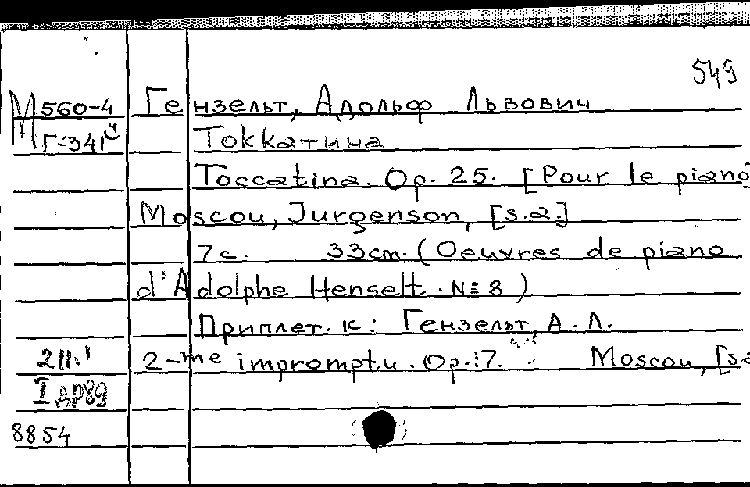 549
М 560-4 Гензельт, Адольф Львович
М Г-341 Токкатина
Toccatina. Op. 25. [Pour le piano
Moscou, Jurgenson, [s.a.]
7с. 33cm. (Oeuvres de piano
d'Adolphe Henselt. №8)
Приплет. к: Гензельт, А. Л.
2-me impromptu. Op. 17. Moscou, [s.a
8854